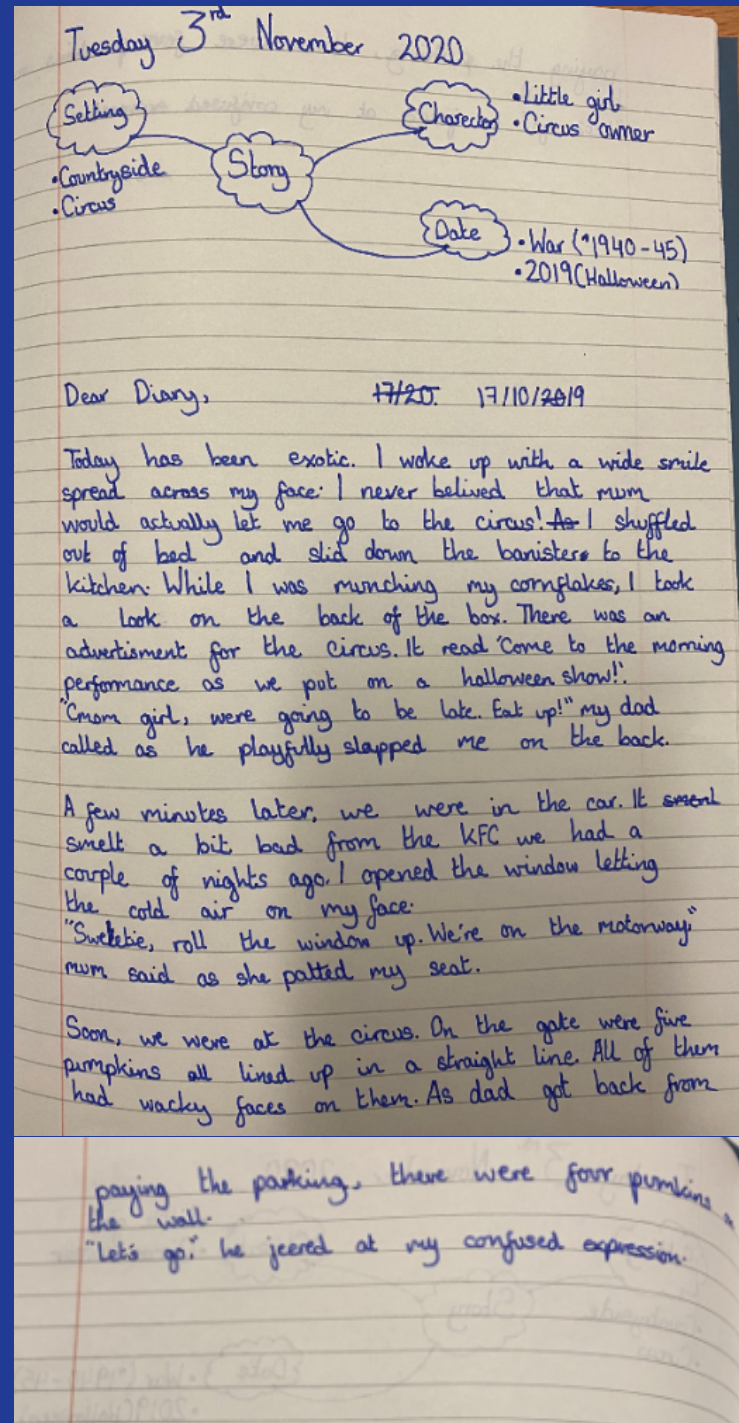 Tuesday 3rd November 2020
Setting
• Countryside
• Circus
Story
Charector
• Little girl
• Circus owner
Date
• War (^1940-45)
• 2019 (Halloween)
Dear Diary,
17/20. 17/10/2019
Today has been exotic. I woke up with a wide smile
spread across my face: I never belived that mum
would actually let me go to the circus! As I shuffled
out of bed and slid down the banisters to the
kitchen. While I was munching my cornflakes, I took
a look on the back of the box. There was an
advertisment for the circus. It read 'Come to the morning
performance as we put on a halloween show!'.
"Cmom girl, were going to be late. Eat up!" my dad
called as he playfully slapped me on the back.
A few minutes later, we were in the car. It
smelt a bit bad from the KFC we had a
couple of nights ago. I opened the window letting
the cold air on my face.
"Sweetie, roll the window up. We're on the motorway,"
mum said as she patted my seat.
Soon, we were at the circus. On the gate were five
pumpkins all lined up in a straight line. All of them
had wacky faces on them. As dad got back from
paying the parking, there were four pumkins
the wall.
"Let's go." he jeered at my confused expression.